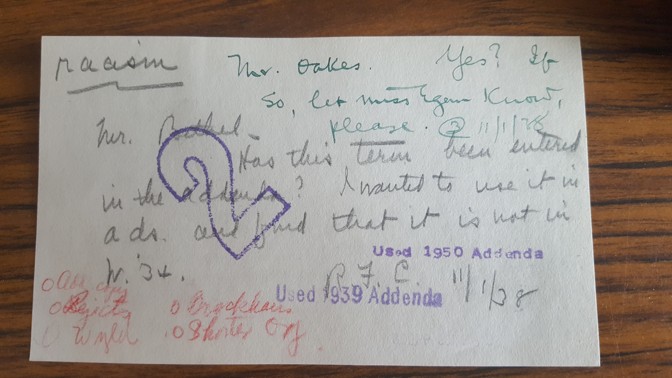 racism
Mr. Oakes. Yes? If
So, let Miss Egan Know,
please. 11/1/38
Mr. Bethel -
Has this term been entered
in the addenda? I wanted to use it in
ads. and find that it is not in
W. '34.
R. F. C. 11/1/38
2
Used 1950 Addenda
Used 1939 Addenda
Rejects
Wyld
Shorter Oxf